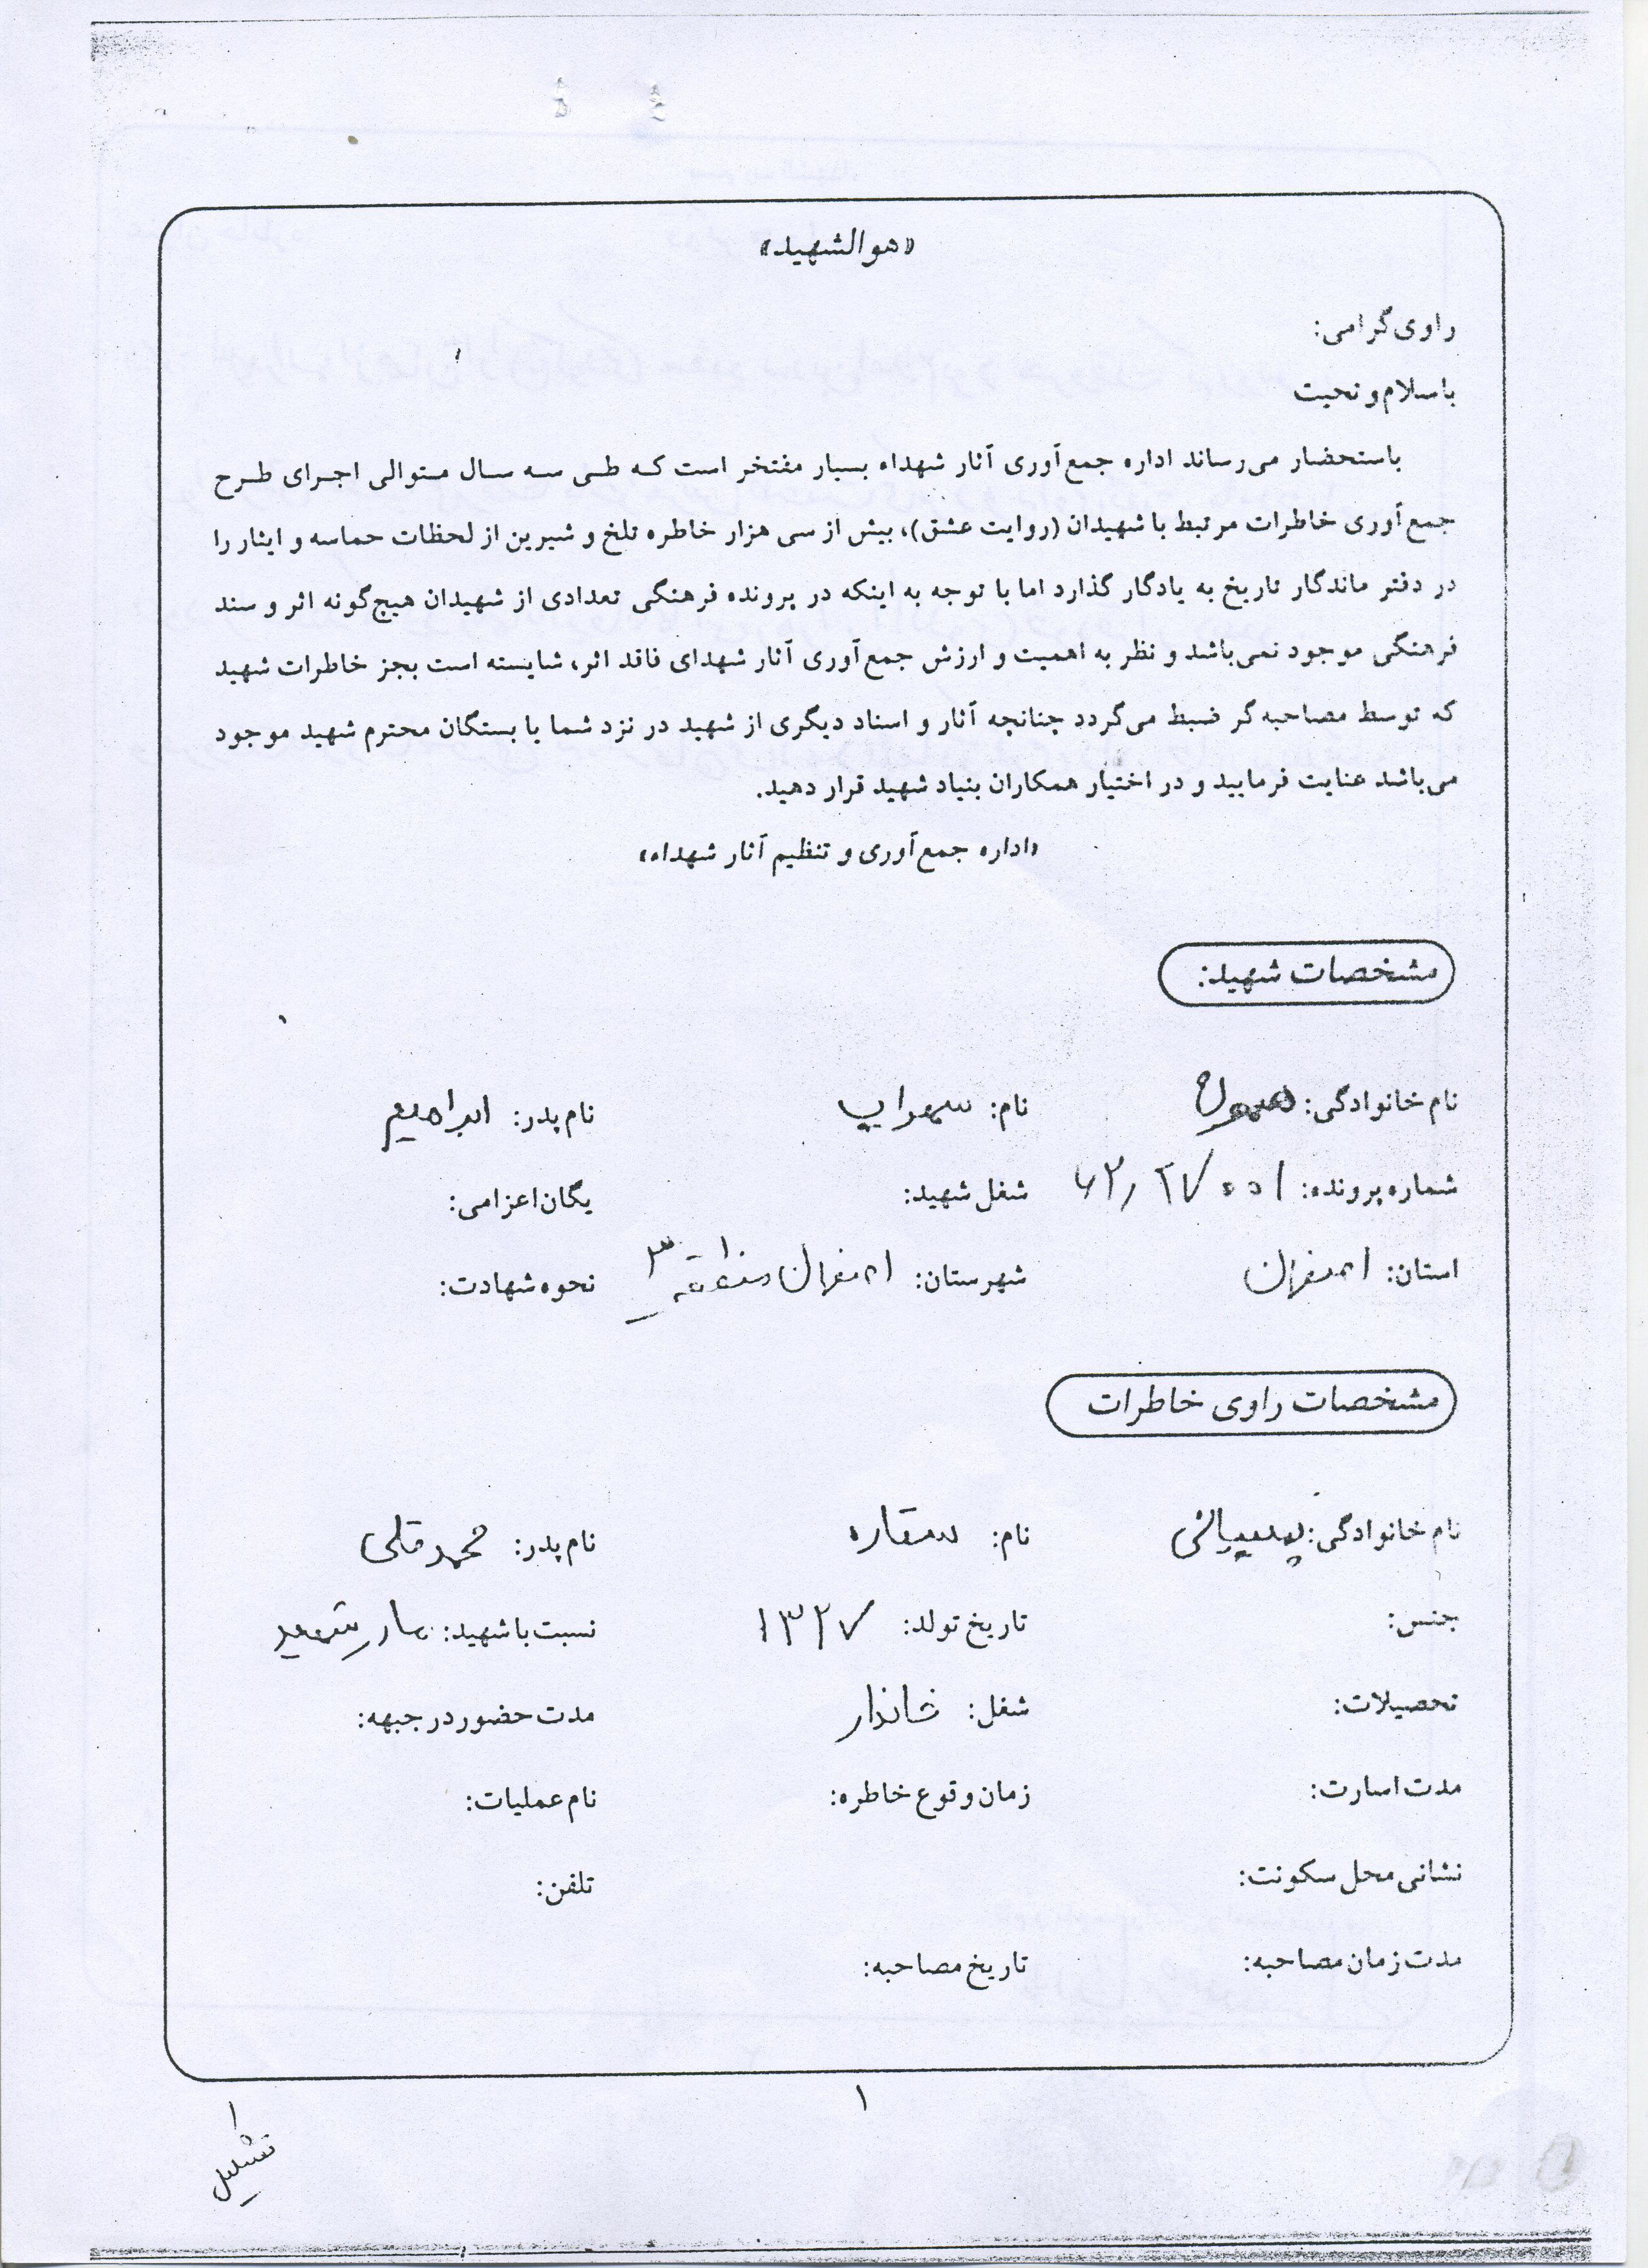 «هوالشهید»
راوی گرامی:
باسلام و تحیت
باستحضار می‌رساند اداره جمع‌آوری آثار شهداء بسیار مفتخر است که طی سه سال متوالی اجرای طرح
جمع‌آوری خاطرات مرتبط با شهیدان (روایت عشق)، بیش از سی هزار خاطره تلخ و شیرین از لحظات حماسه و ایثار را
در دفتر ماندگار تاریخ به یادگار گذارد اما با توجه به اینکه در پرونده فرهنگی تعدادی از شهیدان هیچ‌گونه اثر و سند
فرهنگی موجود نمی‌باشد و نظر به اهمیت و ارزش جمع‌آوری آثار شهدای فاقد اثر، شایسته است بجز خاطرات شهید
که توسط مصاحبه‌گر ضبط می‌گردد چنانچه آثار و اسناد دیگری از شهید در نزد شما یا بستگان محترم شهید موجود
می‌باشد عنایت فرمایید و در اختیار همکاران بنیاد شهید قرار دهید.
«اداره جمع‌آوری و تنظیم آثار شهداء»
مشخصات شهید:
نام خانوادگی: نام: سهراب نام پدر: ابراهیم
شماره پرونده: شغل شهید: یگان اعزامی:
استان: اصفهان شهرستان: اصفهان منطقه ۳ نحوه شهادت:
مشخصات راوی خاطرات
نام خانوادگی: نام: ستاره نام پدر: محمدقلی
جنس: تاریخ تولد: ۱۳۲۷ نسبت با شهید: مادر شهید
تحصیلات: شغل: خانه‌دار مدت حضور در جبهه:
مدت اسارت: زمان وقوع خاطره: نام عملیات:
نشانی محل سکونت: تلفن:
مدت زمان مصاحبه: تاریخ مصاحبه:
۱